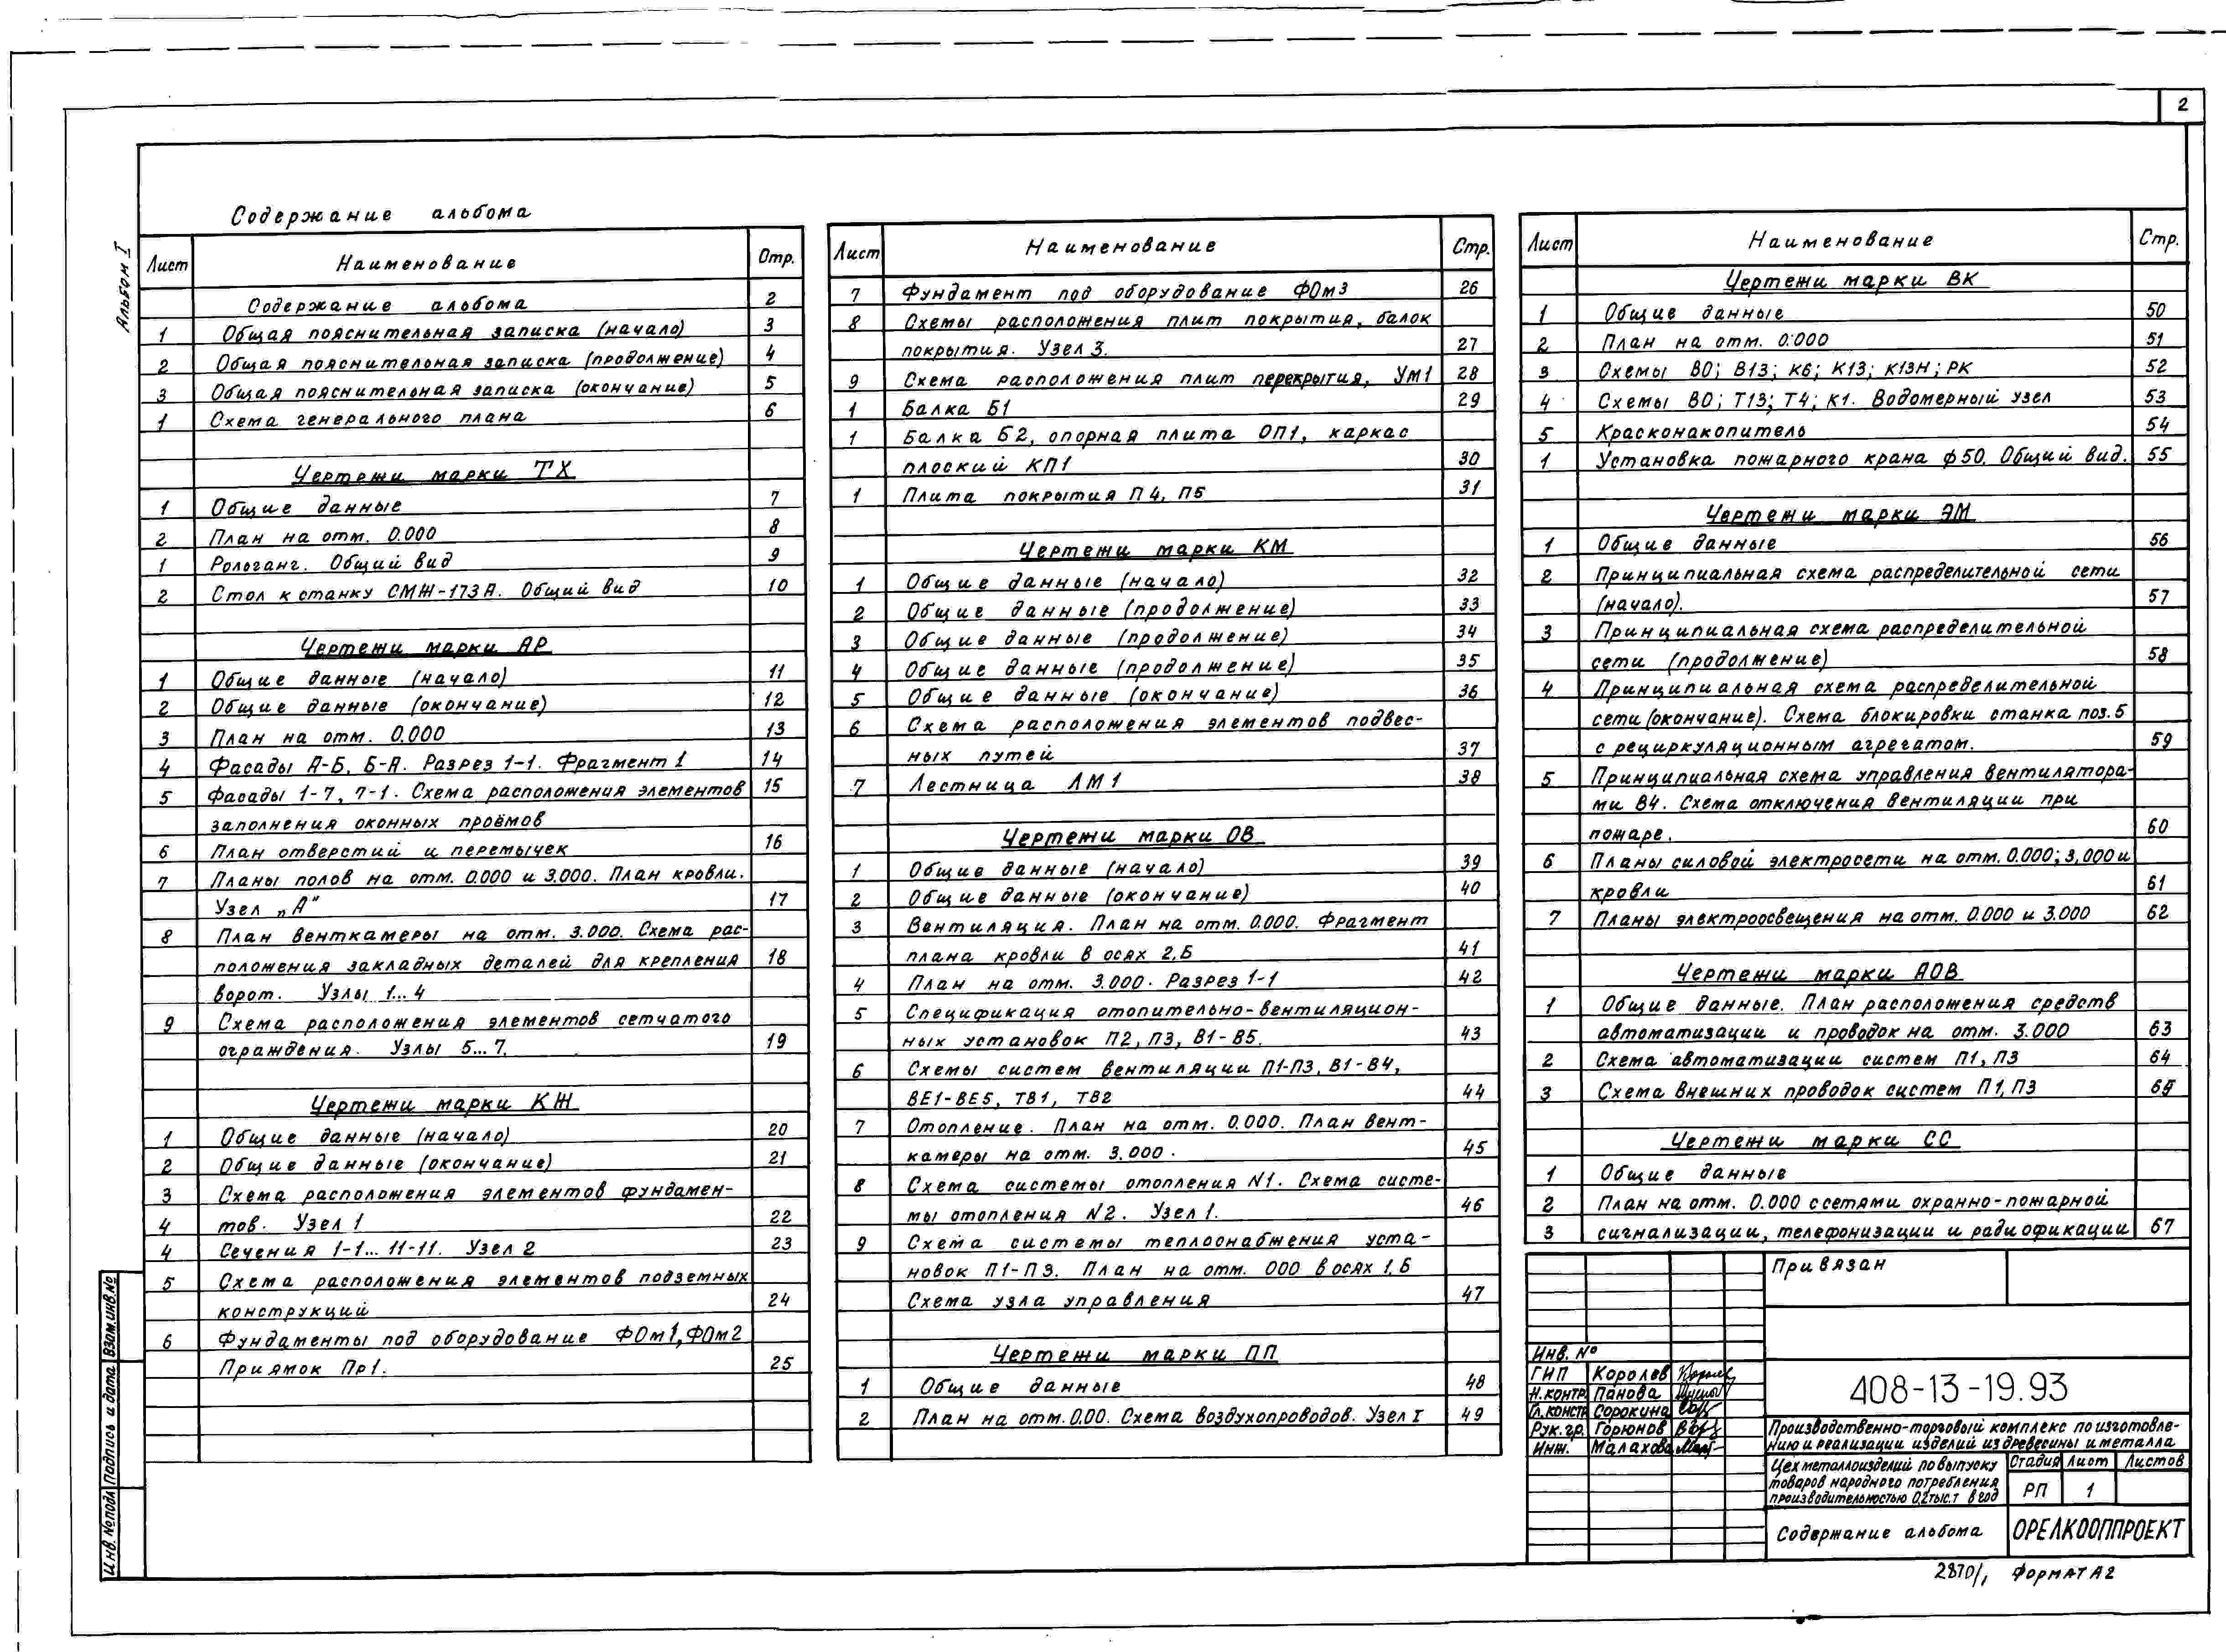 2
Альбом I
Содержание альбома
Лист Наименование Стр.
Содержание альбома 2
1 Общая пояснительная записка (начало) 3
2 Общая пояснительная записка (продолжение) 4
3 Общая пояснительная записка (окончание) 5
1 Схема генерального плана 6
Чертежи марки ТХ
1 Общие данные 7
2 План на отм. 0.000 8
1 Рольганг. Общий вид 9
2 Стол к станку СМЖ-173А. Общий вид 10
Чертежи марки АР
1 Общие данные (начало) 11
2 Общие данные (окончание) 12
3 План на отм. 0.000 13
4 Фасады А-Б, Б-А. Разрез 1-1. Фрагмент 1 14
5 Фасады 1-7, 7-1. Схема расположения элементов 15
заполнения оконных проёмов
6 План отверстий и перемычек 16
7 Планы полов на отм. 0.000 и 3.000. План кровли.
Узел „А" 17
8 План венткамеры на отм. 3.000. Схема рас-
положения закладных деталей для крепления 18
ворот. Узлы 1...4
9 Схема расположения элементов сетчатого
ограждения. Узлы 5...7. 19
Чертежи марки КЖ
1 Общие данные (начало) 20
2 Общие данные (окончание) 21
3 Схема расположения элементов фундамен-
4 тов. Узел 1 22
4 Сечения 1-1... 11-11. Узел 2 23
5 Схема расположения элементов подземных
конструкций 24
6 Фундаменты под оборудование ФОм1, ФОм2
Приямок Пр1. 25
Лист Наименование Стр.
7 Фундамент под оборудование ФОм3 26
8 Схемы расположения плит покрытия, балок
покрытия. Узел 3. 27
9 Схема расположения плит перекрытия, Ум1 28
1 Балка Б1 29
1 Балка Б2, опорная плита ОП1, каркас
плоский КП1 30
1 Плита покрытия П4, П5 31
Чертежи марки КМ
1 Общие данные (начало) 32
2 Общие данные (продолжение) 33
3 Общие данные (продолжение) 34
4 Общие данные (продолжение) 35
5 Общие данные (окончание) 36
6 Схема расположения элементов подвес-
ных путей 37
7 Лестница ЛМ1 38
Чертежи марки ОВ
1 Общие данные (начало) 39
2 Общие данные (окончание) 40
3 Вентиляция. План на отм. 0.000. Фрагмент
плана кровли в осях 2,Б 41
4 План на отм. 3.000. Разрез 1-1 42
5 Спецификация отопительно-вентиляцион-
ных установок П2, П3, В1-В5. 43
6 Схемы систем вентиляции П1-П3, В1-В4,
ВЕ1-ВЕ5, ТВ1, ТВ2 44
7 Отопление. План на отм. 0.000. План вент-
камеры на отм. 3.000. 45
8 Схема системы отопления N1. Схема систе-
мы отопления N2. Узел 1. 46
9 Схема системы теплоснабжения уста-
новок П1-П3. План на отм. 000 в осях 1,Б
Схема узла управления 47
Чертежи марки ПП
1 Общие данные 48
2 План на отм. 0.00. Схема воздухопроводов. Узел I 49
Лист Наименование Стр.
Чертежи марки ВК
1 Общие данные 50
2 План на отм. 0.000 51
3 Схемы В0; В13; К6; К13; К13Н; РК 52
4 Схемы В0; Т13; Т4; К1. Водомерный узел 53
5 Красконакопитель 54
1 Установка пожарного крана ф50. Общий вид. 55
Чертежи марки ЭМ
1 Общие данные 56
2 Принципиальная схема распределительной сети
(начало). 57
3 Принципиальная схема распределительной
сети (продолжение) 58
4 Принципиальная схема распределительной
сети (окончание). Схема блокировки станка поз. 5
с рециркуляционным агрегатом. 59
5 Принципиальная схема управления вентилятора-
ми В4. Схема отключения вентиляции при
пожаре. 60
6 Планы силовой электросети на отм. 0.000; 3.000 и
кровли 61
7 Планы электроосвещения на отм. 0.000 и 3.000 62
Чертежи марки АОВ
1 Общие данные. План расположения средств
автоматизации и проводок на отм. 3.000 63
2 Схема автоматизации систем П1, П3 64
3 Схема внешних проводок систем П1, П3 65
Чертежи марки СС
1 Общие данные
2 План на отм. 0.000 с сетями охранно-пожарной
3 сигнализации, телефонизации и радиофикации 67
Привязан
Инв. №
ГИП Королев
Н.контр. Панова
Гл.констр Сорокина
Рук.гр. Горюнов
Инж. Малахова
408-13-19.93
Производственно-торговый комплекс по изготовле-
нию и реализации изделий из древесины и металла
Цех металлоизделий по выпуску
товаров народного потребления
производительностью 0,2 тыс.т в год
Стадия Лист Листов
РП 1
Содержание альбома
ОРЕЛКООППРОЕКТ
2870/1 Формат А2
Инв. № подл Подпись и дата Взам.инв.№